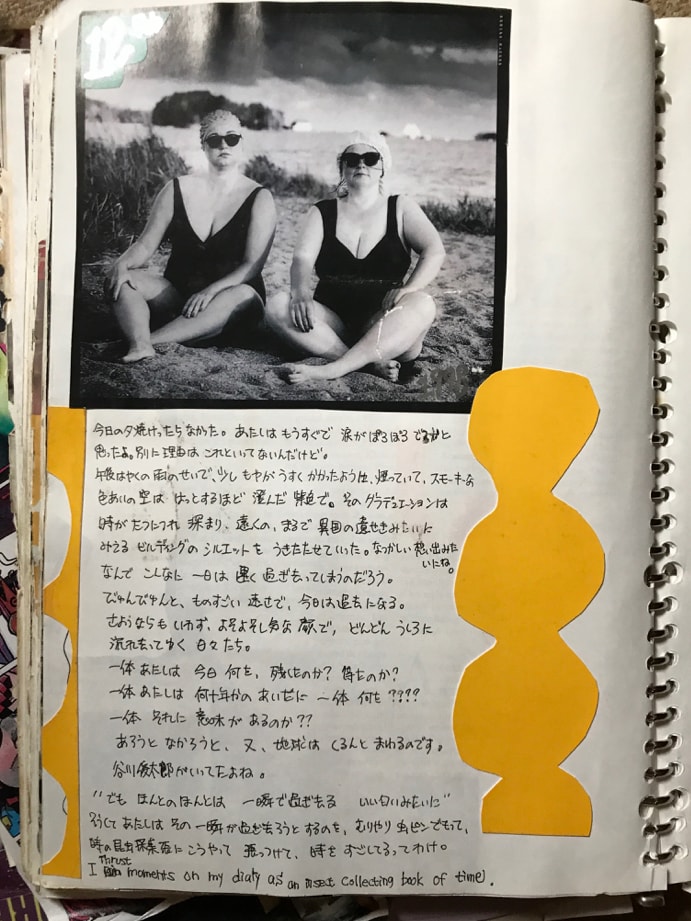 12
今日の夕焼けったらなかった。あたしは もうすぐで 涙が ぽろぽろ でるかと
思ったよ。別に 理由は これといってないんだけど。
午後はやくの 雨のせいで、少し もやが うすく かかったように 煙っていて、スモーキーな
色あいの空は はっとするほど 澄んだ 紫色で。そのグラデュエーションは
時が たつにつれ 深まり、遠くの、まるで 異国の遺せきみたいに
みえる ビルディングの シルエットを うきたたせていった。なつかしい 想い出みた
いにね。
なんで こんなに 一日は 悪く 過ぎ去ってしまうのだろう。
びゅんびゅんと、ものすごい 速さで、今日は過去になる。
さようならも いわず、よそよそしい 顔で、どんどん うしろに
流れ去ってゆく 日々たち。
一体 あたしは 今日 何を、残したのか? 得たのか?
一体 あたしは 何十年かの あいだに 一体 何を ????
一体 それに 意味が あるのか??
あろうと なかろうと、又、地球は くるんと まわるのです。
谷川俊太郎がいってたよね。
"でも ほんとのほんとは 一瞬で過ぎ去る いい匂いみたいに"
そして あたしは その一瞬が過ぎ去ろうとするのを、むりやり 虫ピンでもって、
時の昆虫採集箱に こうやって 張っつけて、時を すごしてるってわけ。
Thrust
I moments on my diary as an insect collecting book of time.